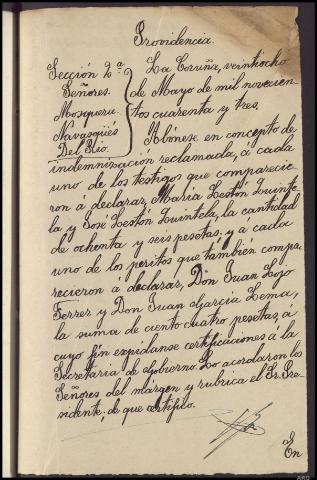 Providencia.
Sección 2ª
Señores.
Mosquera.
Navasqüés
Del Rio.
La Coruña, veintiocho
de Mayo de mil novecien-
tos cuarenta y tres.
Abónese en concepto de
indemnización reclamada, á cada
uno de los testigos que comparecie-
ron á declarar, María Lestón Quinte-
la y José Lestón Quintela, la cantidad
de ochenta y seis pesetas; y a cada
uno de los peritos que también compa-
recieron á declarar, Don Juan
Ferrer y Don Juan García Lema,
la suma de ciento cuatro pesetas, á
cuyo fin expidanse certificaciones á la
Secretaria de Gobierno. Lo acordaron los
Señores del márgen y rubrica el Sr. Pre-
sidente, de que certifico.
En